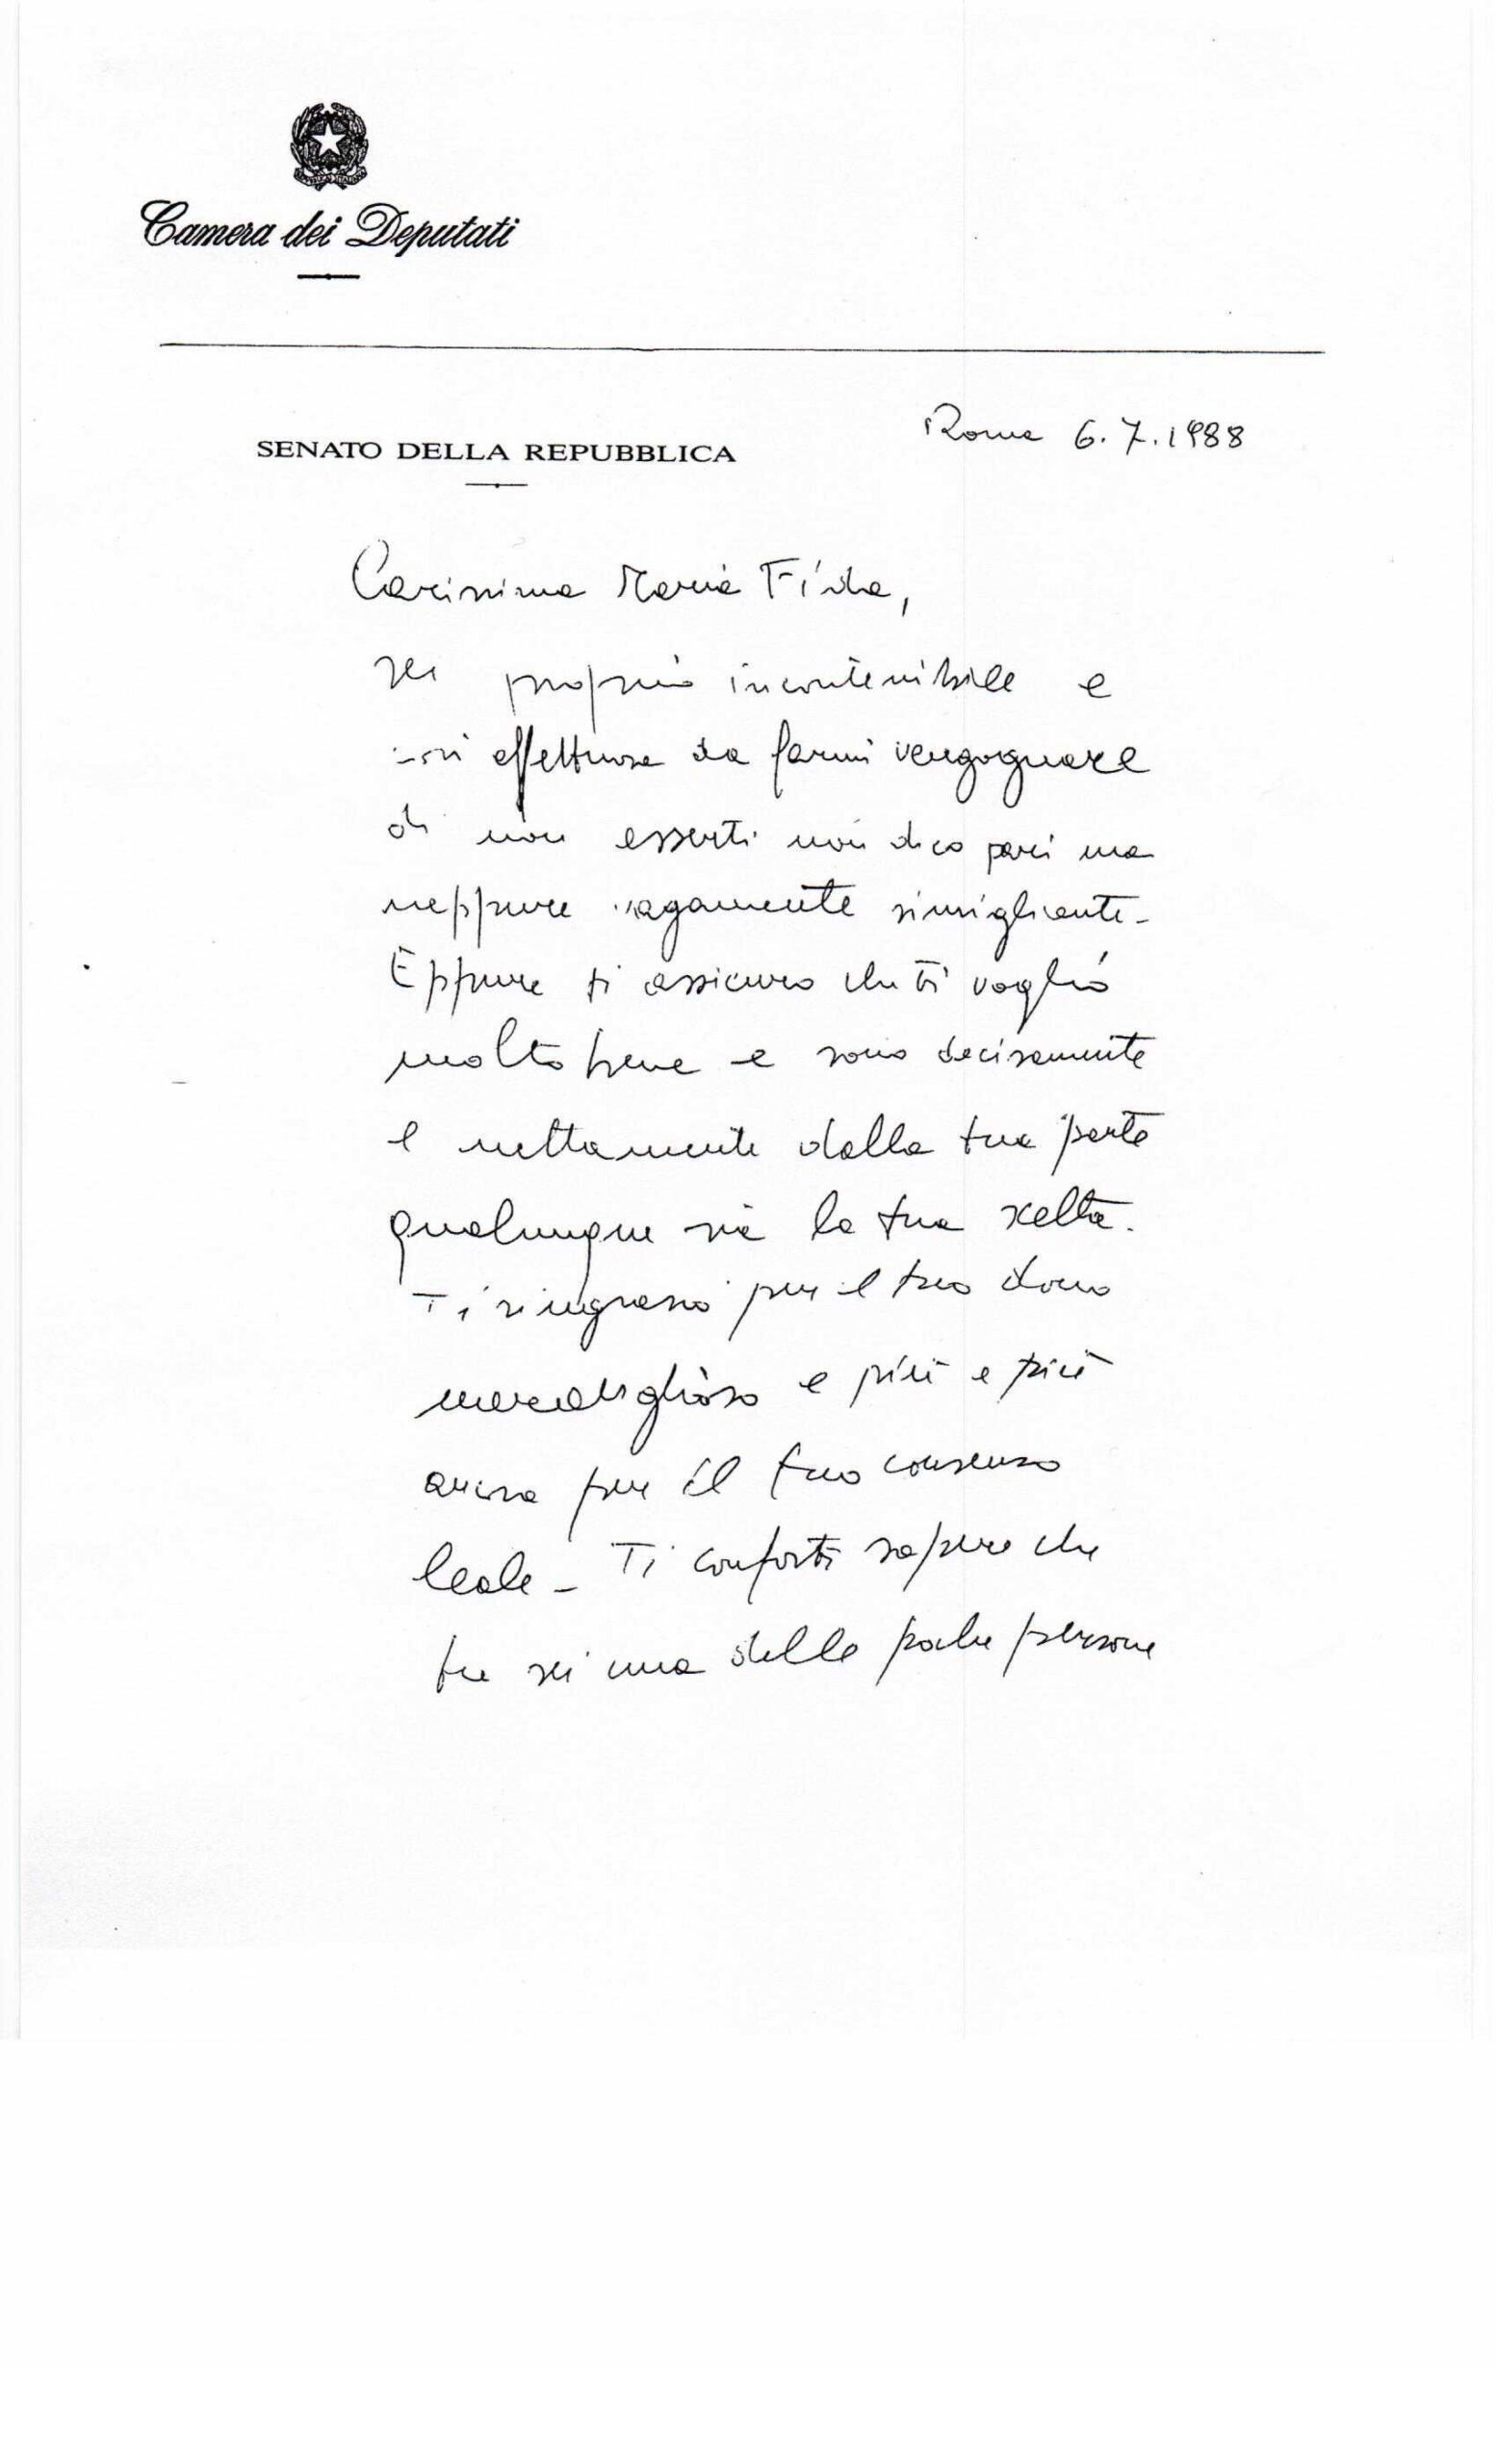 Camera dei Deputati
SENATO DELLA REPUBBLICA
Roma 6.7.1988
Carissima Maria Fida,
sei proprio incontenibile e
così affettuosa da farmi vergognare
di non esserti non dico pari ma
neppure vagamente simigliante -
Eppure ti assicuro che ti voglio
molto bene e sono decisamente
e nettamente dalla tua parte
qualunque sia la tua scelta.
Ti ringrazio per il tuo dono
meraviglioso e più e più
ancora per il tuo consenso
leale - Ti conforti sapere che
tu sei una delle poche persone